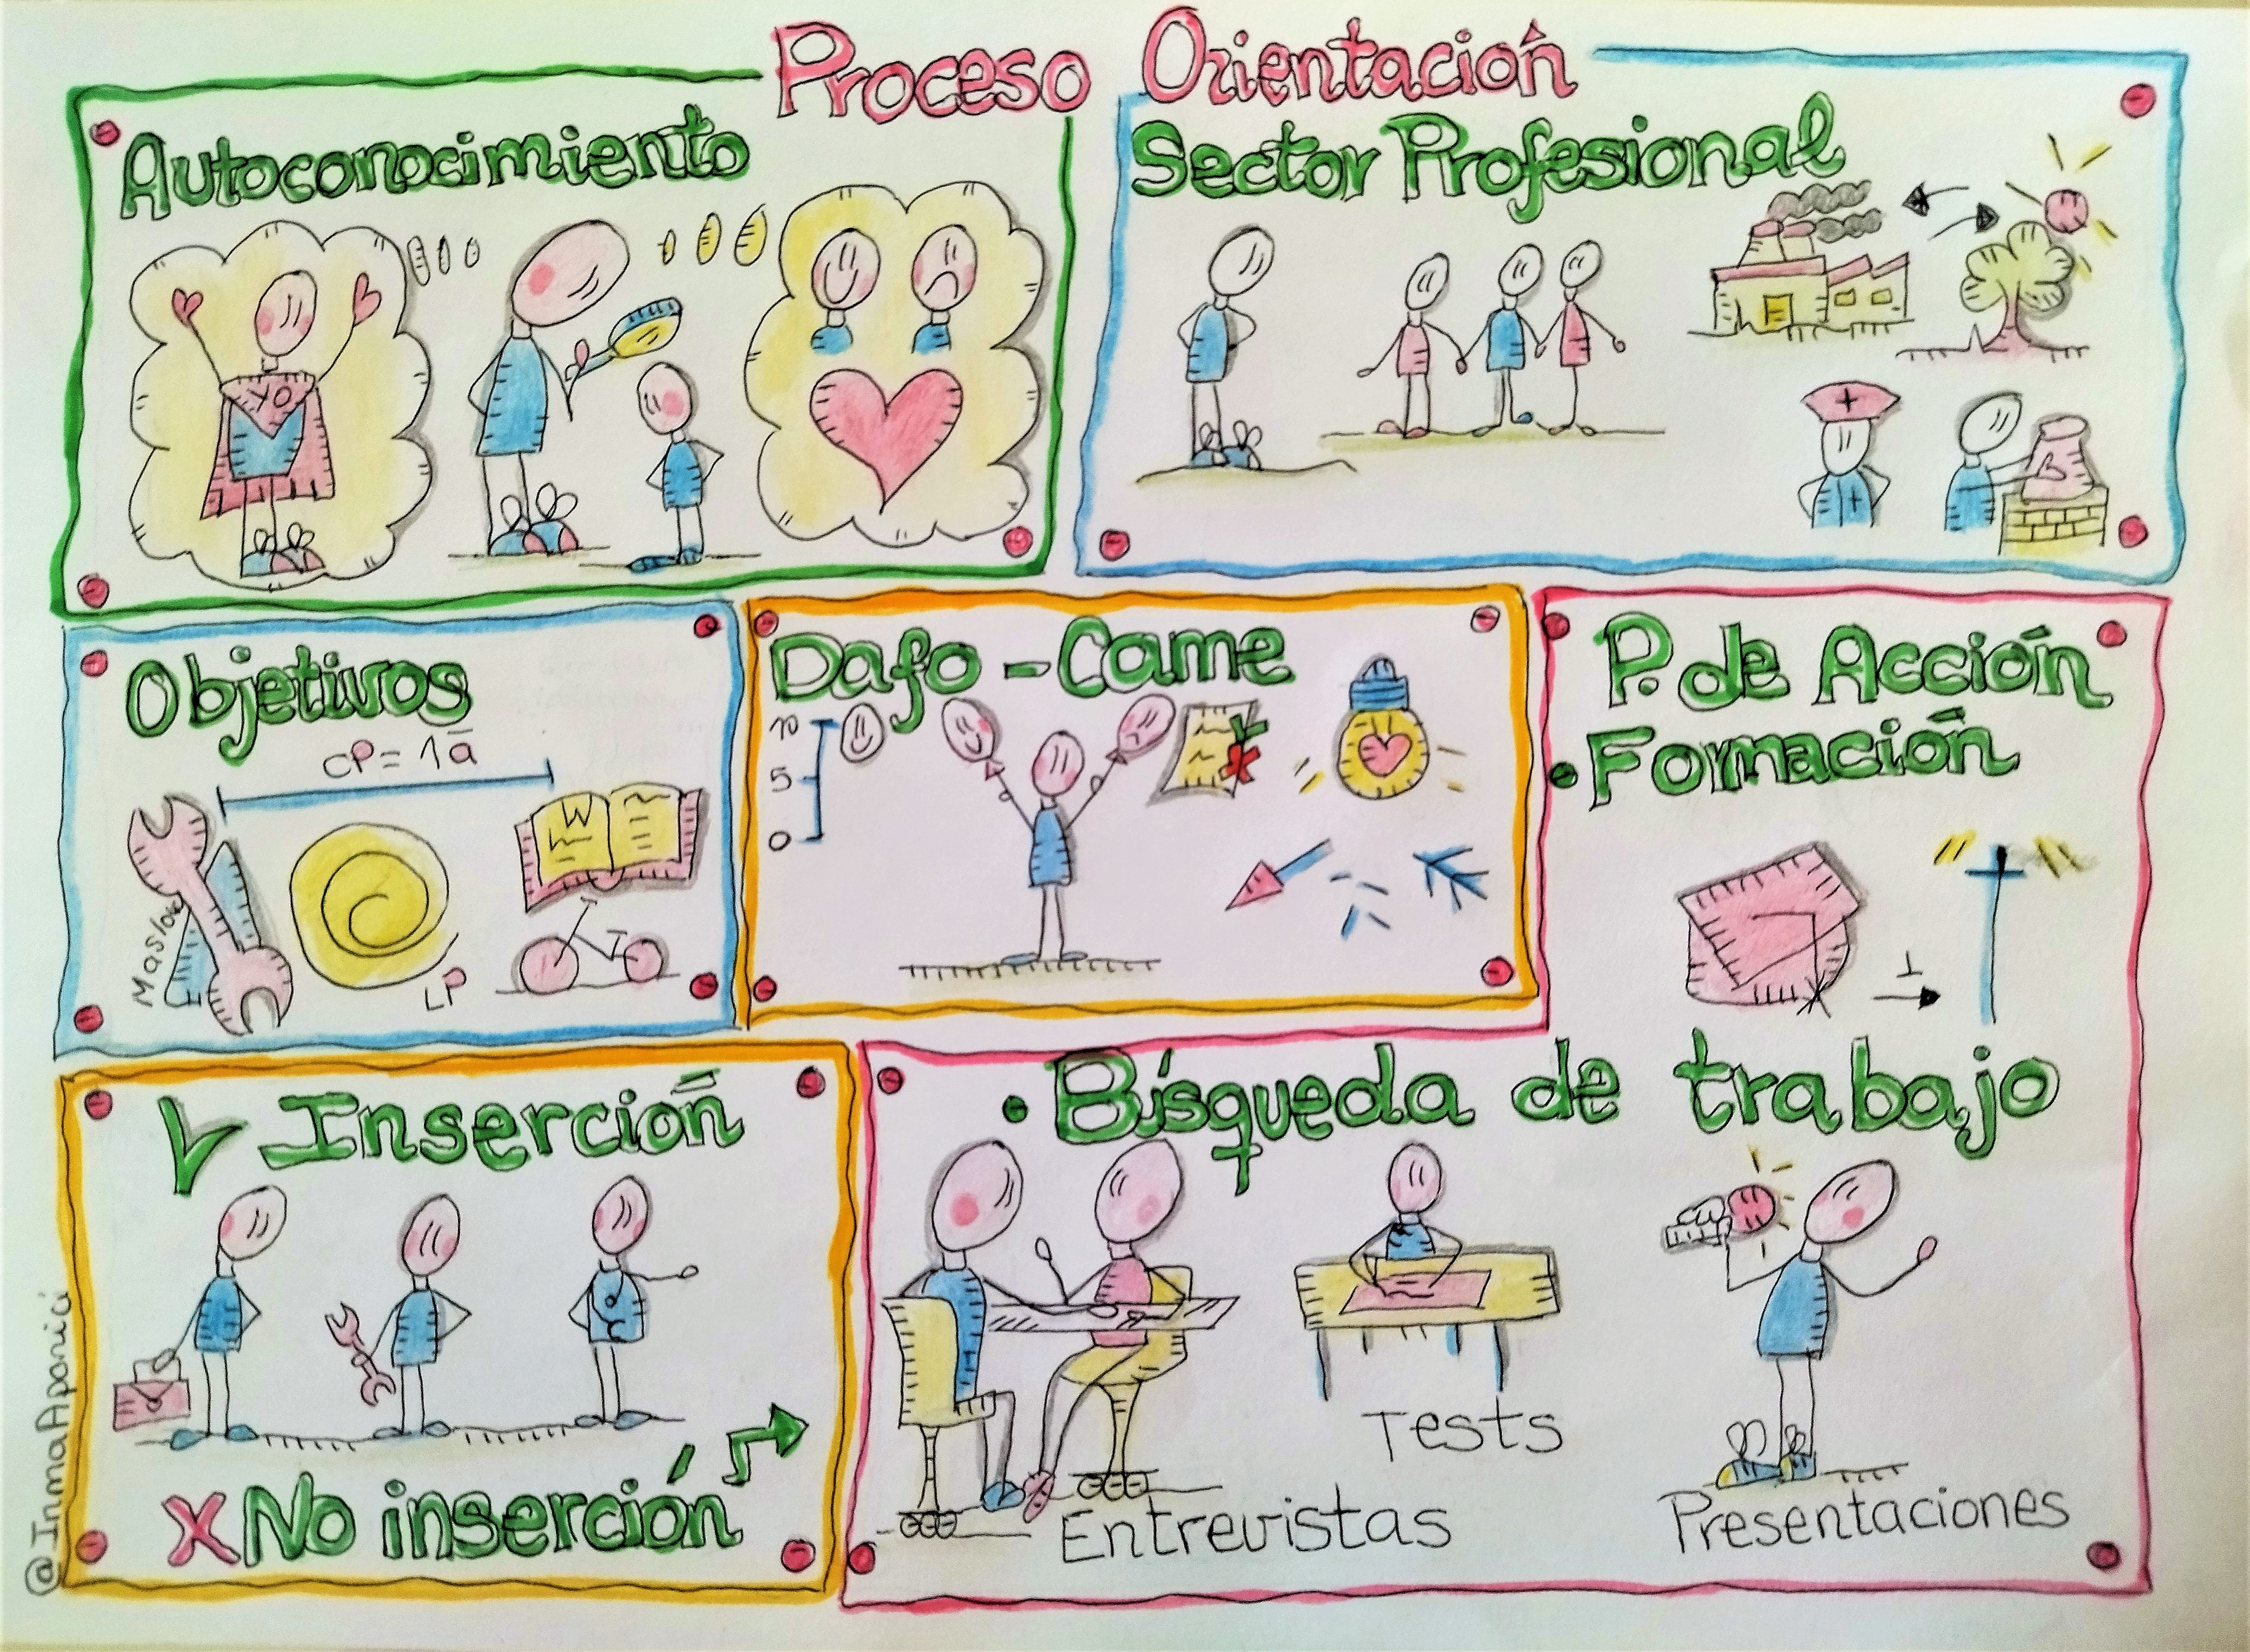 Proceso Orientación
Autoconocimiento
YO
Sector Profesional
Objetivos
CP = 1ā
Maslow
W
LP
Dafo - Came
10
5
0
P. de Acción
• Formación
1
• Búsqueda de trabajo
Entrevistas
Tests
Presentaciones
Inserción
X No inserción
@InmaAparici